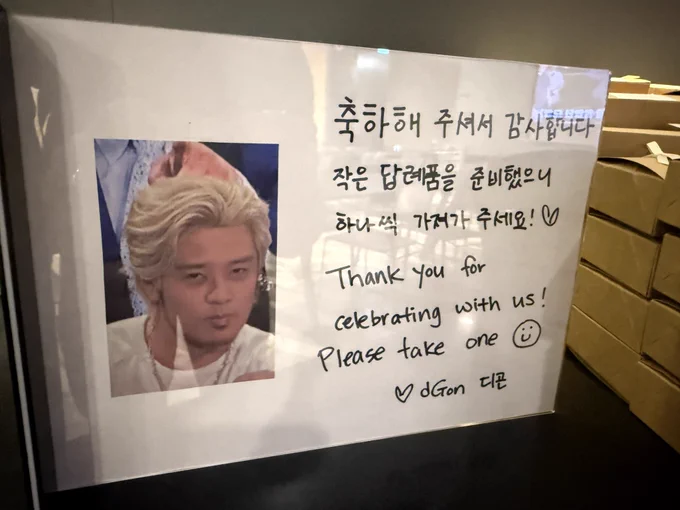 축하해 주셔서 감사합니다
작은 답례품을 준비했으니
하나씩 가져가 주세요! ♡
Thank you for
celebrating with us!
Please take one ☺
♡ dGon 디곤